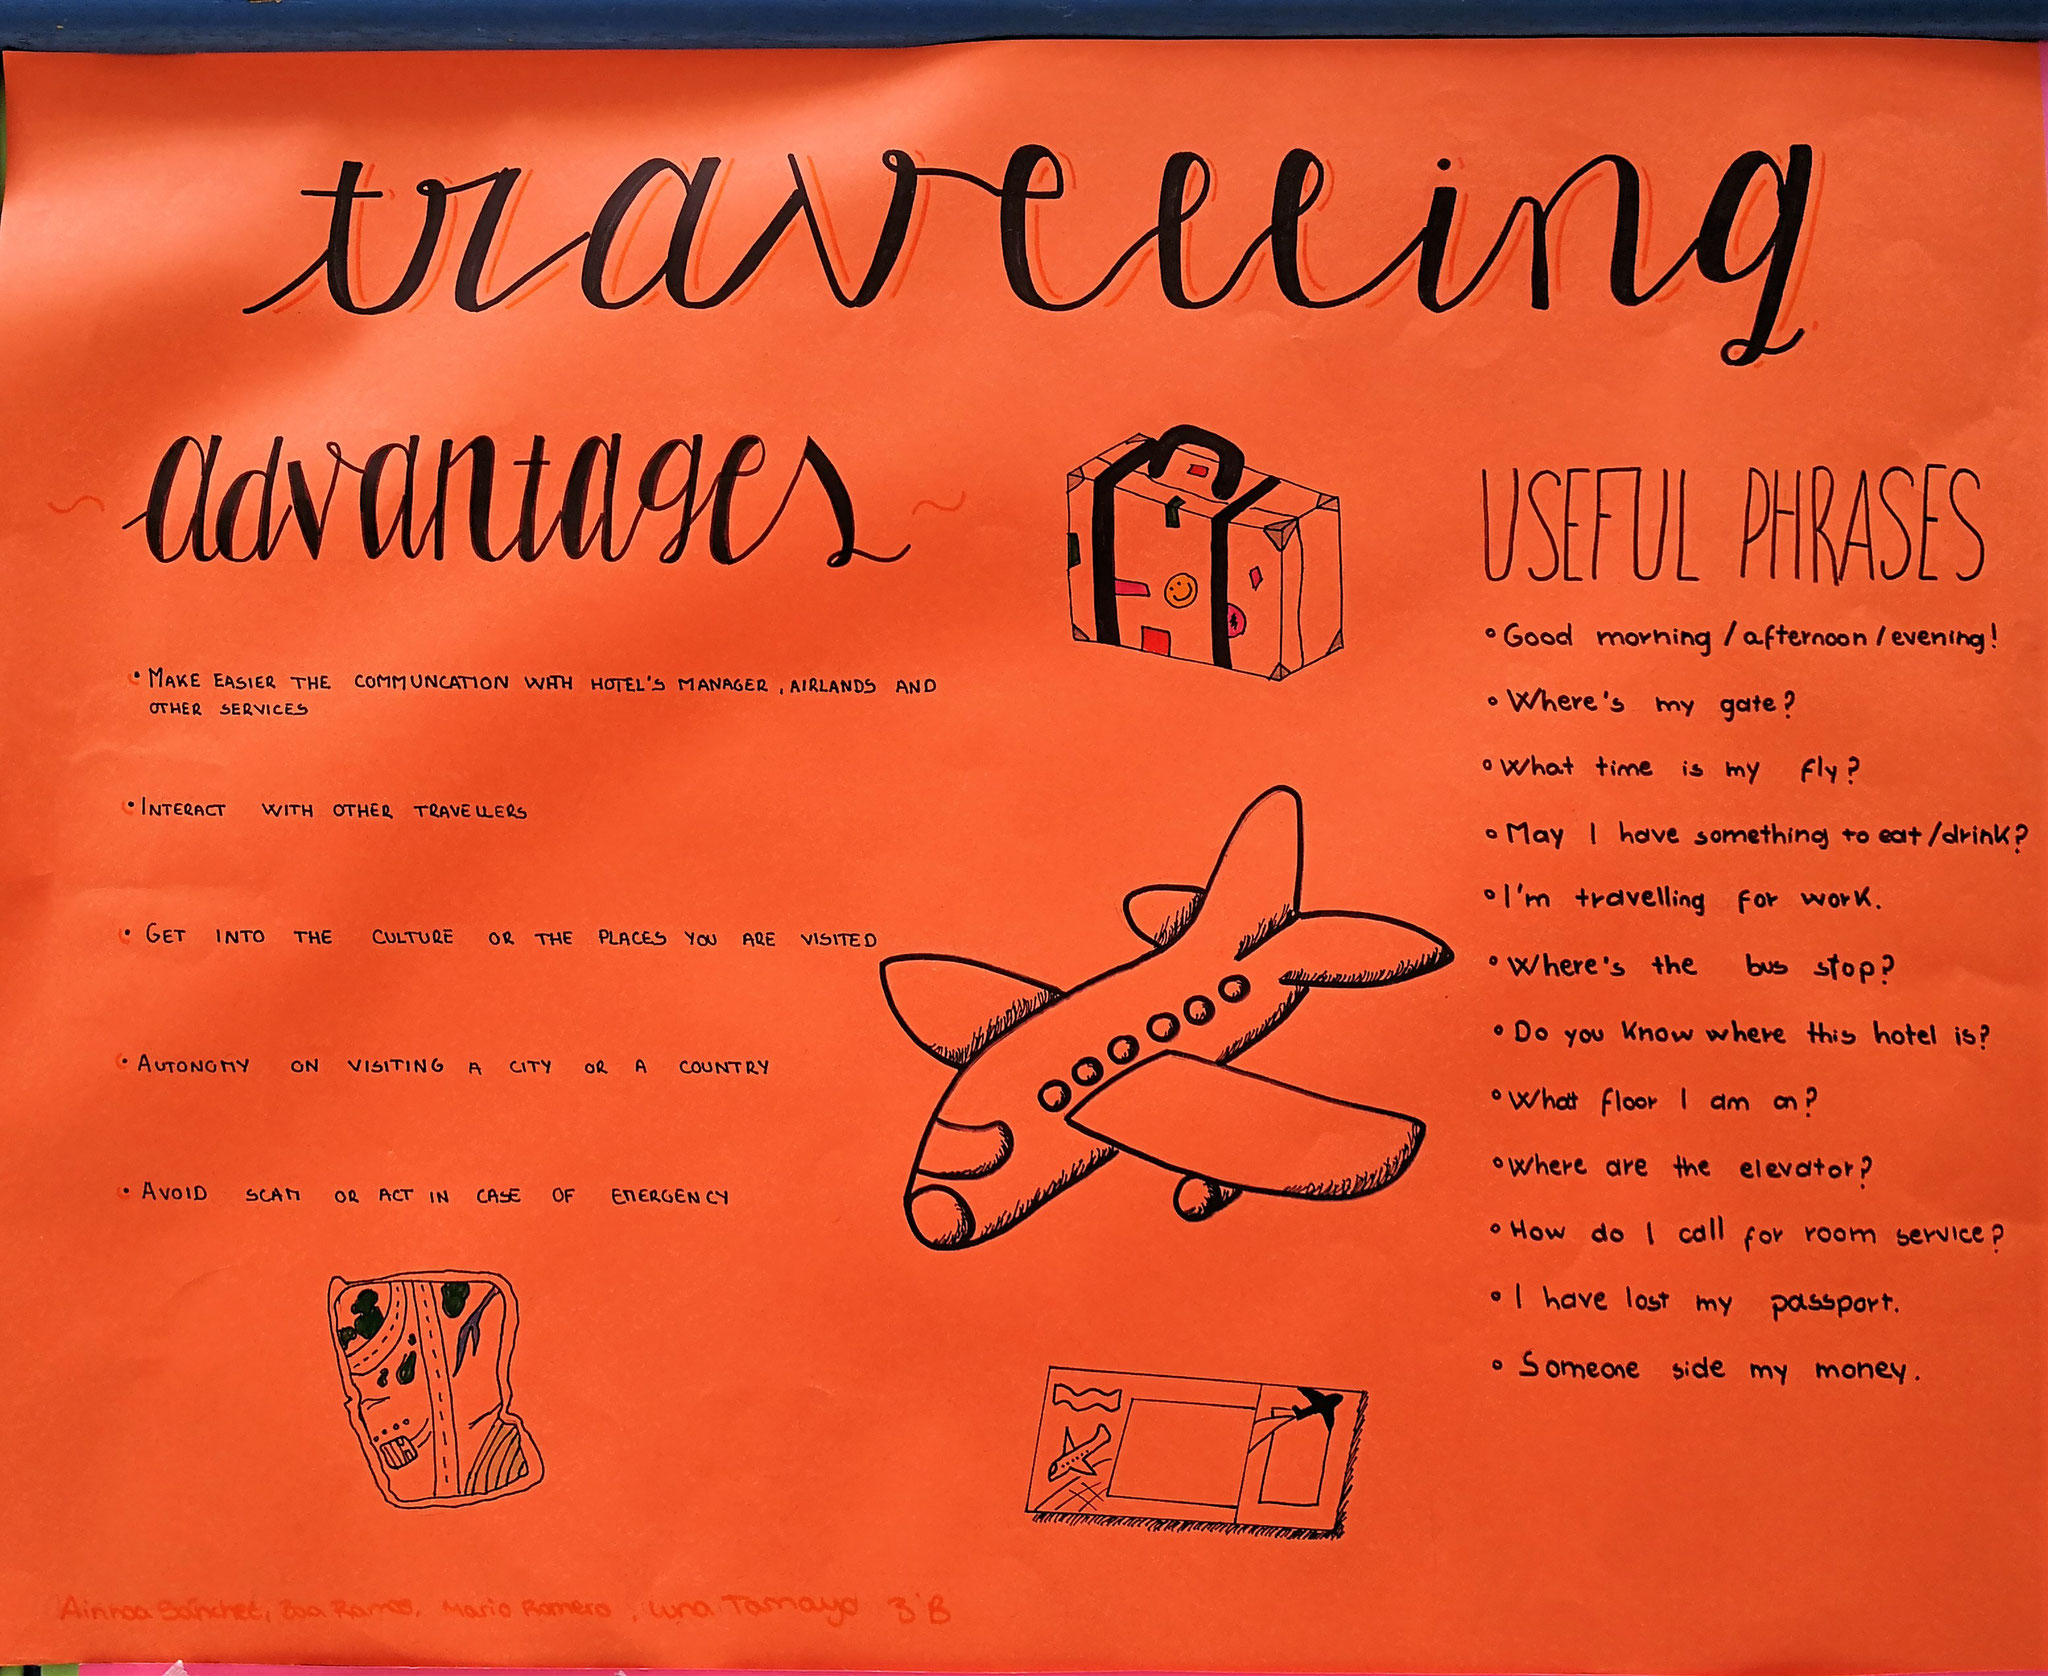 travelling
advantages
• MAKE EASIER THE COMMUNCATION WITH HOTEL'S MANAGER, AIRLANDS AND
OTHER SERVICES
• INTERACT WITH OTHER TRAVELLERS
• GET INTO THE CULTURE OR THE PLACES YOU ARE VISITED
• AUTONOMY ON VISITING A CITY OR A COUNTRY
• AVOID SCAM OR ACT IN CASE OF EMERGENCY
USEFUL PHRASES
• Good morning / afternoon / evening!
• Where's my gate?
• What time is my fly?
• May I have something to eat/drink?
• I'm travelling for work.
• Where's the bus stop?
• Do you know where this hotel is?
• What floor I am on?
• Where are the elevator?
• How do I call for room service?
• I have lost my passport.
• Someone side my money.
Ainhoa Sánchez, Zoa Ramos, Mario Romero, Luna Tamayo 3ºB